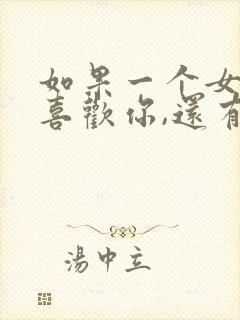 如果一个女
喜歡你,還有
湯中立